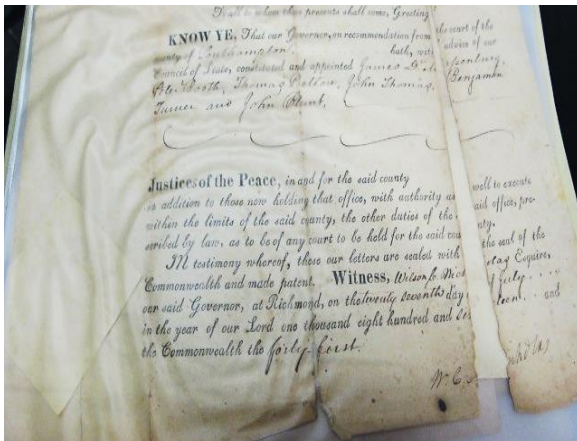 To all to whom these presents shall come, Greeting
KNOW YE, That our Governor, on recommendation from the court of the
county of Southampton, hath, with advice of our
Council of State, constituted and appointed James D.
Peter Booth, Thomas Pretlow, John Thomas, Benjamin
Turner and John Blunt,
Justices of the Peace, in and for the said county
in addition to those now holding that office, with authority as well to execute
within the limits of the said county, the other duties of the said office, pre-
scribed by law, as to be of any court to be held for the said county.
In testimony whereof, these our letters are sealed with the seal of the
Commonwealth and made patent. Witness, Wilson C. Nicholas Esquire,
our said Governor, at Richmond, on the twenty seventh day of July
in the year of our Lord one thousand eight hundred and and
the Commonwealth the forty first.
W. C. Nicholas